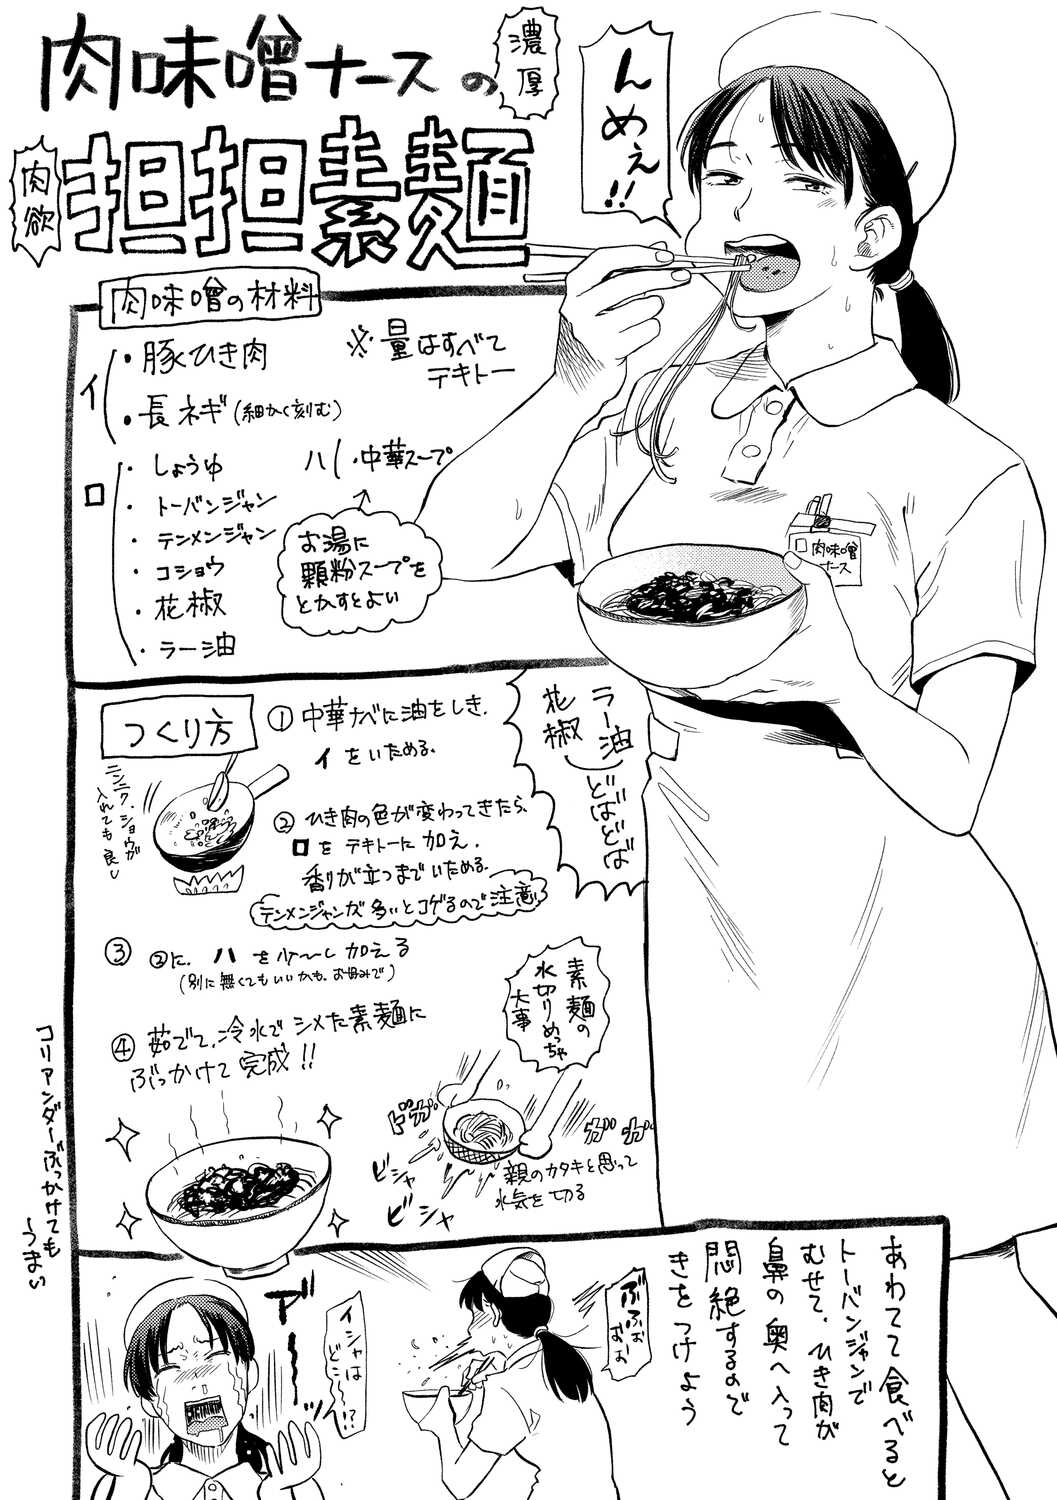 肉味噌ナースの
濃厚
肉欲
担担素麺
んめぇ!!
肉味噌の材料
※量はすべて
テキトー
イ
・豚ひき肉
・長ネギ(細かく刻む)
ロ
・しょうゆ
・トーバンジャン
・テンメンジャン
・コショウ
・花椒
・ラー油
ハ
・中華スープ
お湯に
顆粒スープを
とかすとよい
肉味噌
ナース
つくり方
①中華ナベに油をしき、
イをいためる。
ニンニク、ショウガ
入れても良し
②ひき肉の色が変わってきたら、
ロをテキトーに加え、
香りが立つまでいためる。
テンメンジャンが多いとコゲるので注意
③②に、ハを少〜し加える
(別に無くてもいいかも。お好みで)
④茹でて、冷水でシメた素麺に
ぶっかけて完成!!
ラー油
花椒
どばどば
素麺の
水切りめっちゃ
大事
ドガ
ガガ
ビシャ
ビシャ
親のカタキと思って
水気を切る
コリアンダーぶっかけても
うまい
あわてて食べると
トーバンジャンで
むせて、ひき肉が
鼻の奥へ入って
悶絶するので
きをつけよう
ぶふぉ
ぉぉ
イシャは
どこだ!?
アーーッ